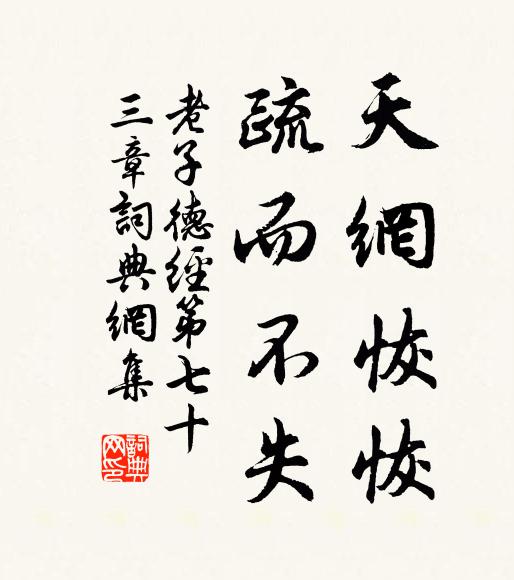 天網恢恢
疏而不失
老子德經第七十
三章詞典網集
詞典网印